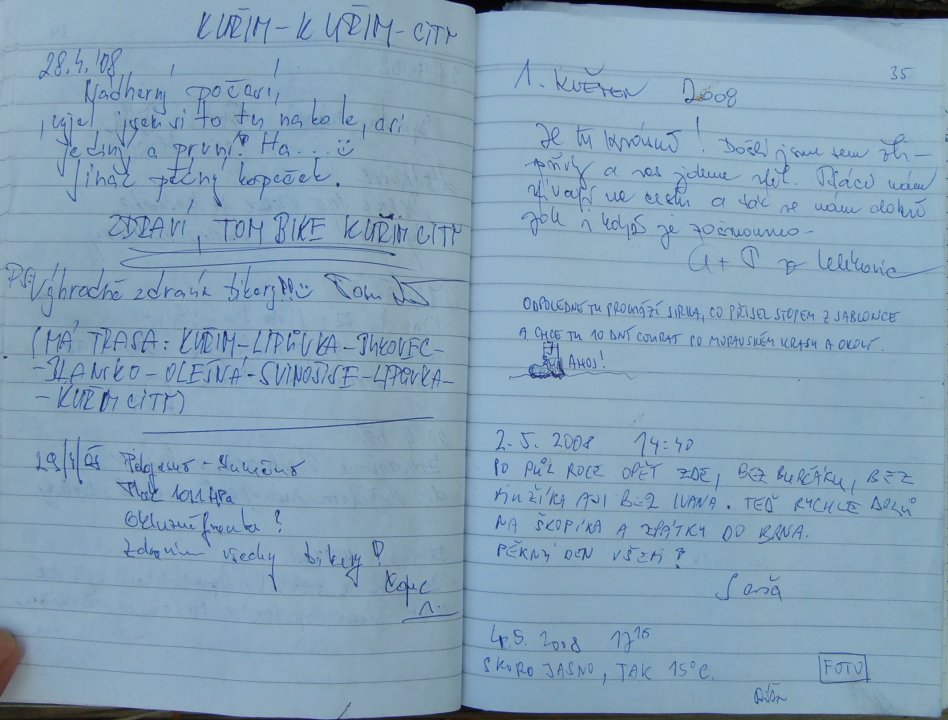 KUŘIM-KUŘIM-CITY
28.4.'08
Nádherný počasí,
vyjel jsem si to tu na kole, asi
jediný a první? Ha...
Jinak pěkný kopeček.
ZDRAVÍ, TOM BIKE KUŘIM CITY
PS: Výhradně zdravím bikery!!! Tom
(MÁ TRASA: KUŘIM-LIPŮVKA-
-BLANSKO-OLEŠNÁ-SVINOŠICE-LIPŮVKA-
-KUŘIM CITY)
29/4/08 Polojasno - Slunečno
Tlak 1011 hPa
Okluzní fronta?
Zdravím všechny bikery!
35
1. KVĚTEN 2008
Je tu krásně! Došli jsme sem
a zas jdeme zpět. Ptáci nám
zpívají na cestu a tak se nám dobře
i když je
G + P z Lelekovic
ODPOLEDNE TU PROCHÁZÍ SIRKA, CO PŘIJEL STOPEM Z JABLONCE
A CHCE TU 10 DNÍ COURAT PO MORAVSKÉM KRASU A OKOLÍ.
AHOJ!
2.5. 2008 14:40
PO PŮL ROCE OPĚT ZDE, BEZ BURČÁKU, BEZ
ANI BEZ IVANA. TEĎ RYCHLE DOLŮ
NA ŠKOPÍKA A ZPÁTKY DO BRNA.
PĚKNÝ DEN VŠEM!
Saša
4.5. 2008 17 16
SKORO JASNO, TAK 15°C.
FOTO